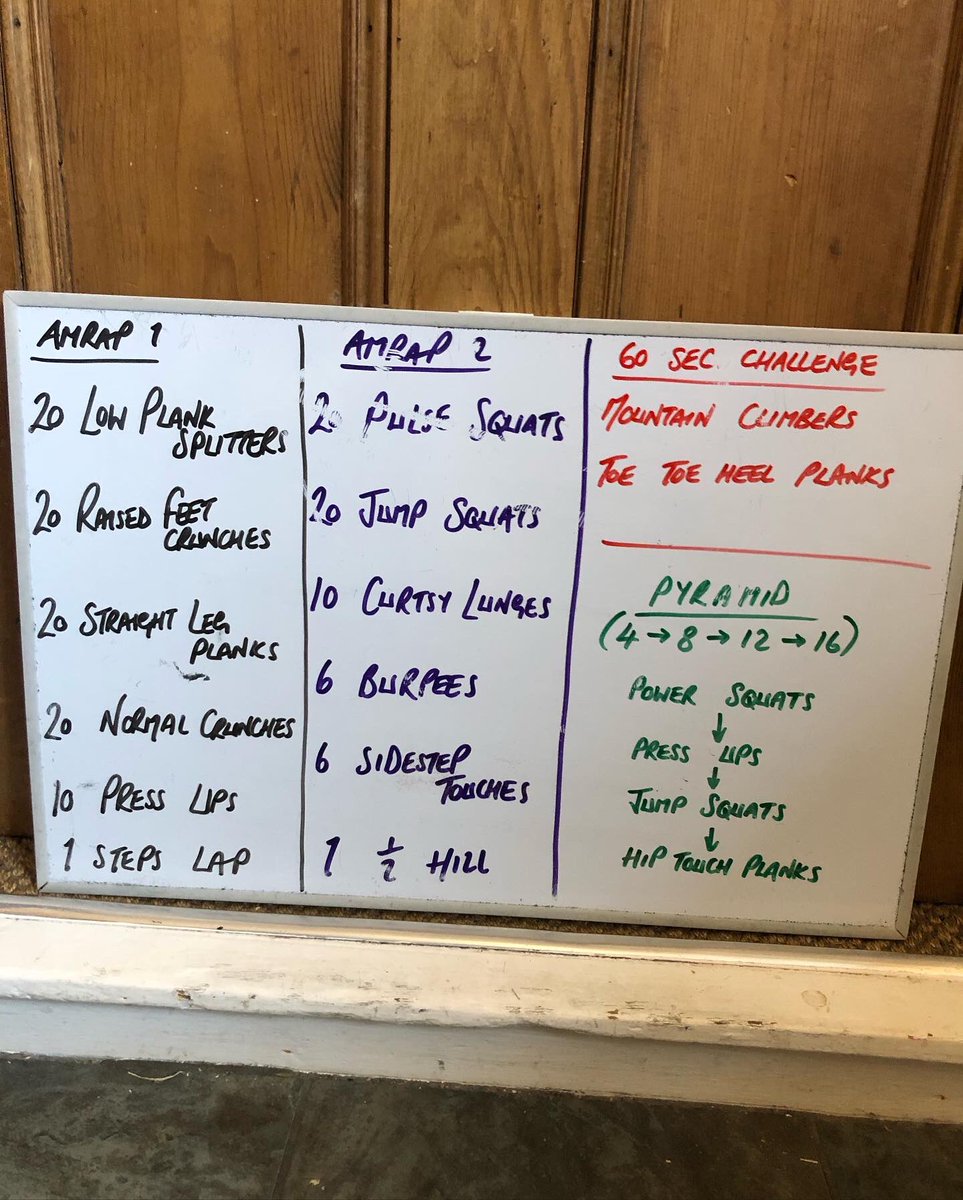 AMRAP 1
20 LOW PLANK
SPLITTERS
20 RAISED FEET
CRUNCHES
20 STRAIGHT LEG
PLANKS
20 NORMAL CRUNCHES
10 PRESS UPS
1 STEPS LAP
AMRAP 2
20 PULSE SQUATS
20 JUMP SQUATS
10 CURTSY LUNGES
6 BURPEES
6 SIDESTEP
TOUCHES
1 1/2 HILL
60 SEC. CHALLENGE
MOUNTAIN CLIMBERS
TOE TOE HEEL PLANKS
PYRAMID
(4 → 8 → 12 → 16)
POWER SQUATS
↓
PRESS UPS
↓
JUMP SQUATS
↓
HIP TOUCH PLANKS